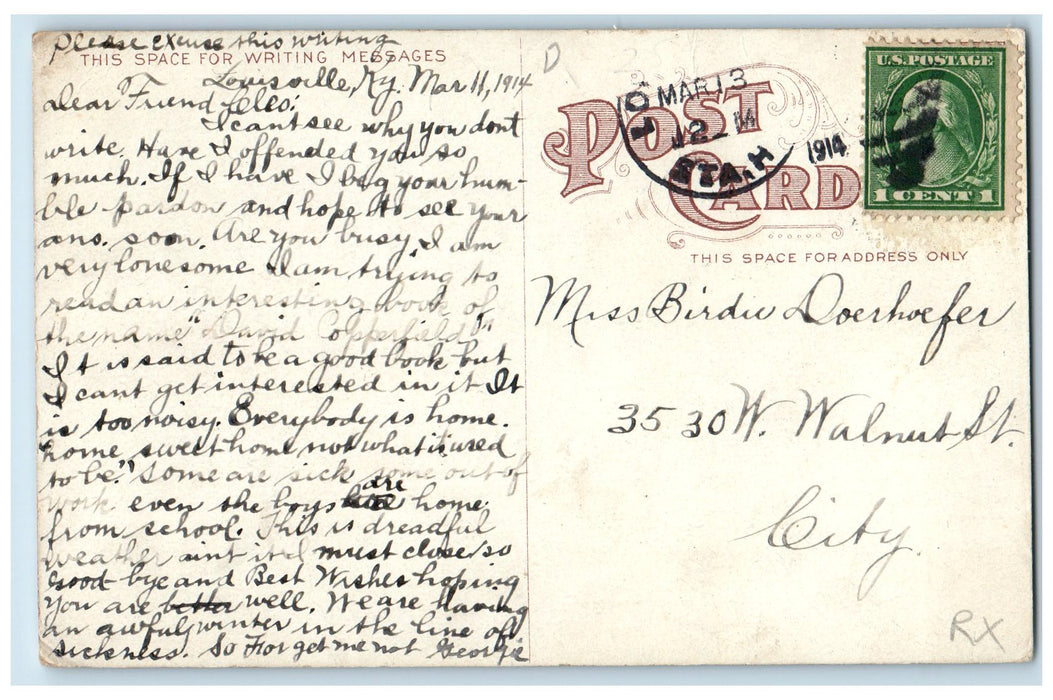 Please excuse this writing
THIS SPACE FOR WRITING MESSAGES
Louisville, Ky. Mar 11, 1914
Dear Friend
I cant see why you dont
write. Have I offended you so
much. If I have I beg your hum-
ble pardon and hope to see your
ans. soon. Are you busy, I am
very lonesome I am trying to
read an interesting book of
the name "David Copperfield"
It is said to be a good book but
I cant get interested in it It
is too noisy. Everybody is home.
"home sweet home not what it used
to be." some are sick some out of
work even the boys are home
from school. This is dreadful
weather aint it I must close so
good bye and Best Wishes hoping
you are better well. We are having
an awful winter in the line of
sickness. So Forget me not Georgie
POST CARD
MAR 13
12 M
1914
STA. H
U.S. POSTAGE
1 CENT 1
THIS SPACE FOR ADDRESS ONLY
Miss Birdie Doerhoefer
3530 W. Walnut St.
City.
D
RX